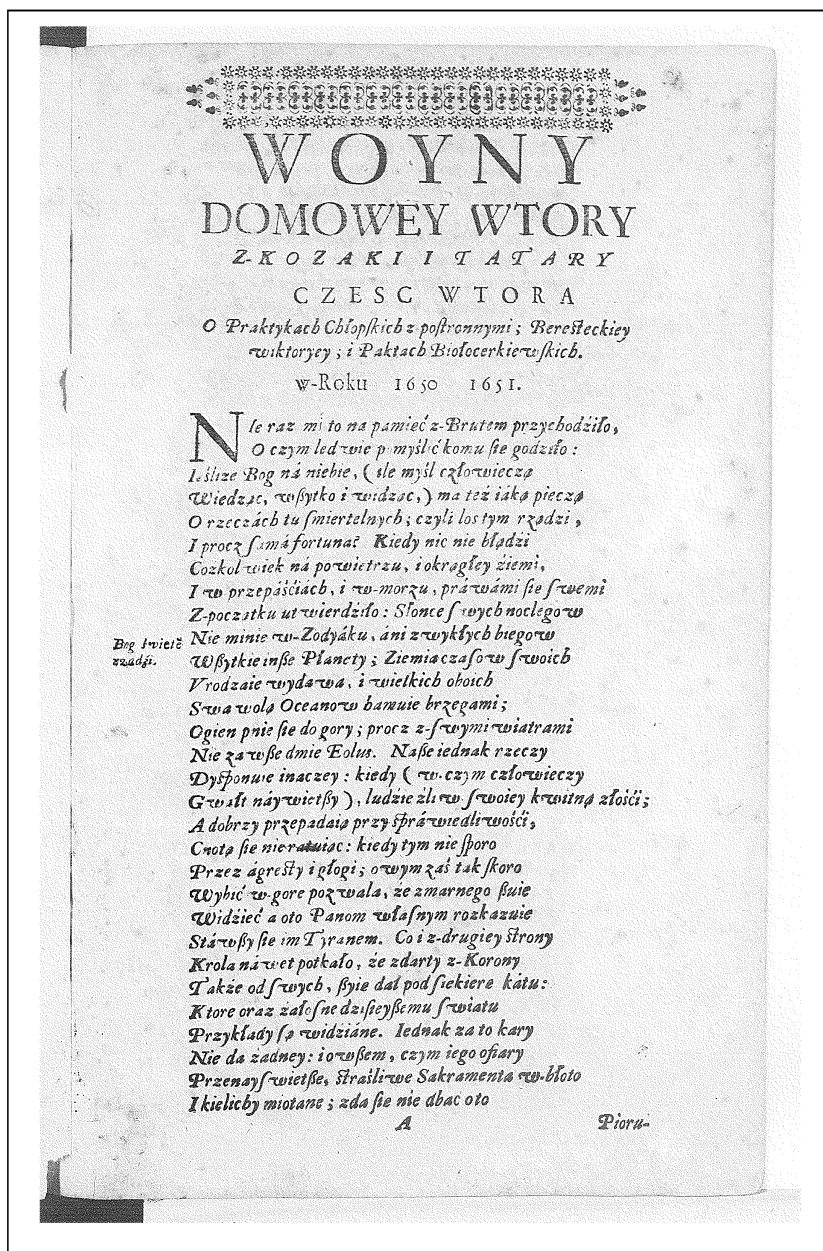 WOYNY
DOMOWEY WTORY
Z-KOZAKI I TATARY
CZESC WTORA
O Praktykach Chłopſkich z poſtronnymi; Bereſteckiey
wiktoryey; i Paktach Białocerkiewſkich.
w-Roku 1650 1651.
NIe raz mi to na pamieć z-Brutem przychodźiło,
O czym ledwie pomyślić komu ſie godźiło:
Ieślize Bog ná niebie, (tle myśl człowieczą
Wiedząc, wßytko i widząc,) ma też iáką pieczą
O rzeczách tu ſmiertelnych; czyli los tym rządzi,
I procz ſamá fortuna? Kiedy nic nie błądźi
Cozkolwiek ná powietrzu, i okrągłey źiemi,
I w przepáśćiách, i w-morzu, práwámi ſie ſwemi
Z-początku utwierdźiło: Słonce ſwych noclegow
Nie minie w-Zodyáku, áni zwykłych biegow
Bog świátē
rządźi.
Wßytkie inße Płanety; Ziemia czaſow ſwoich
Vrodzaie wydawa, i wielkich oboich
Swawolą Oceanow hamuie brzegami;
Ogien pnie ſie do gory; procz z-ſwymi wiatrami
Nie zawße dmie Eolus. Naße iednak rzeczy
Dyſponuie inaczey: kiedy (w-czym człowieczy
Gwałt náywietßy), ludzie źli w ſwoiey kwitną złośći;
A dobrzy przepadaią przy ſpráwiedliwośći,
Cnotą ſie nie ratuiąc: kiedy tym nie ſporo
Przez ágreſty i głogi; owym zaś tak ſkoro
Wybić w-gore pozwala, że zmarnego ßuie
Widźieć a oto Panom właſnym rozkazuie
Stáwßy ſie im Tyranem. Co i z-drugiey ſtrony
Krola náwet potkało, że zdarty z-Korony
Także od ſwych, ßyie dał pod ſiekiere kátu:
Ktore oraz żałoſne dźiſieyßemu ſwiatu
Przykłady ſą widźiáne. Iednak za to kary
Nie da żadney: i owßem, czym iego ofiary
Przenayſwietße, ſtraśliwe Sakramenta w-błoto
I kielichy miotane; zda ſie nie dbac oto
A Pioru-